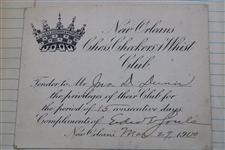 New Orleans
Chess, Checkers & Whist
Club
Tender to Mr. Jno. D.
the privileges of their Club for
the period of 15 consecutive days
Compliments of
New Orleans 29 190